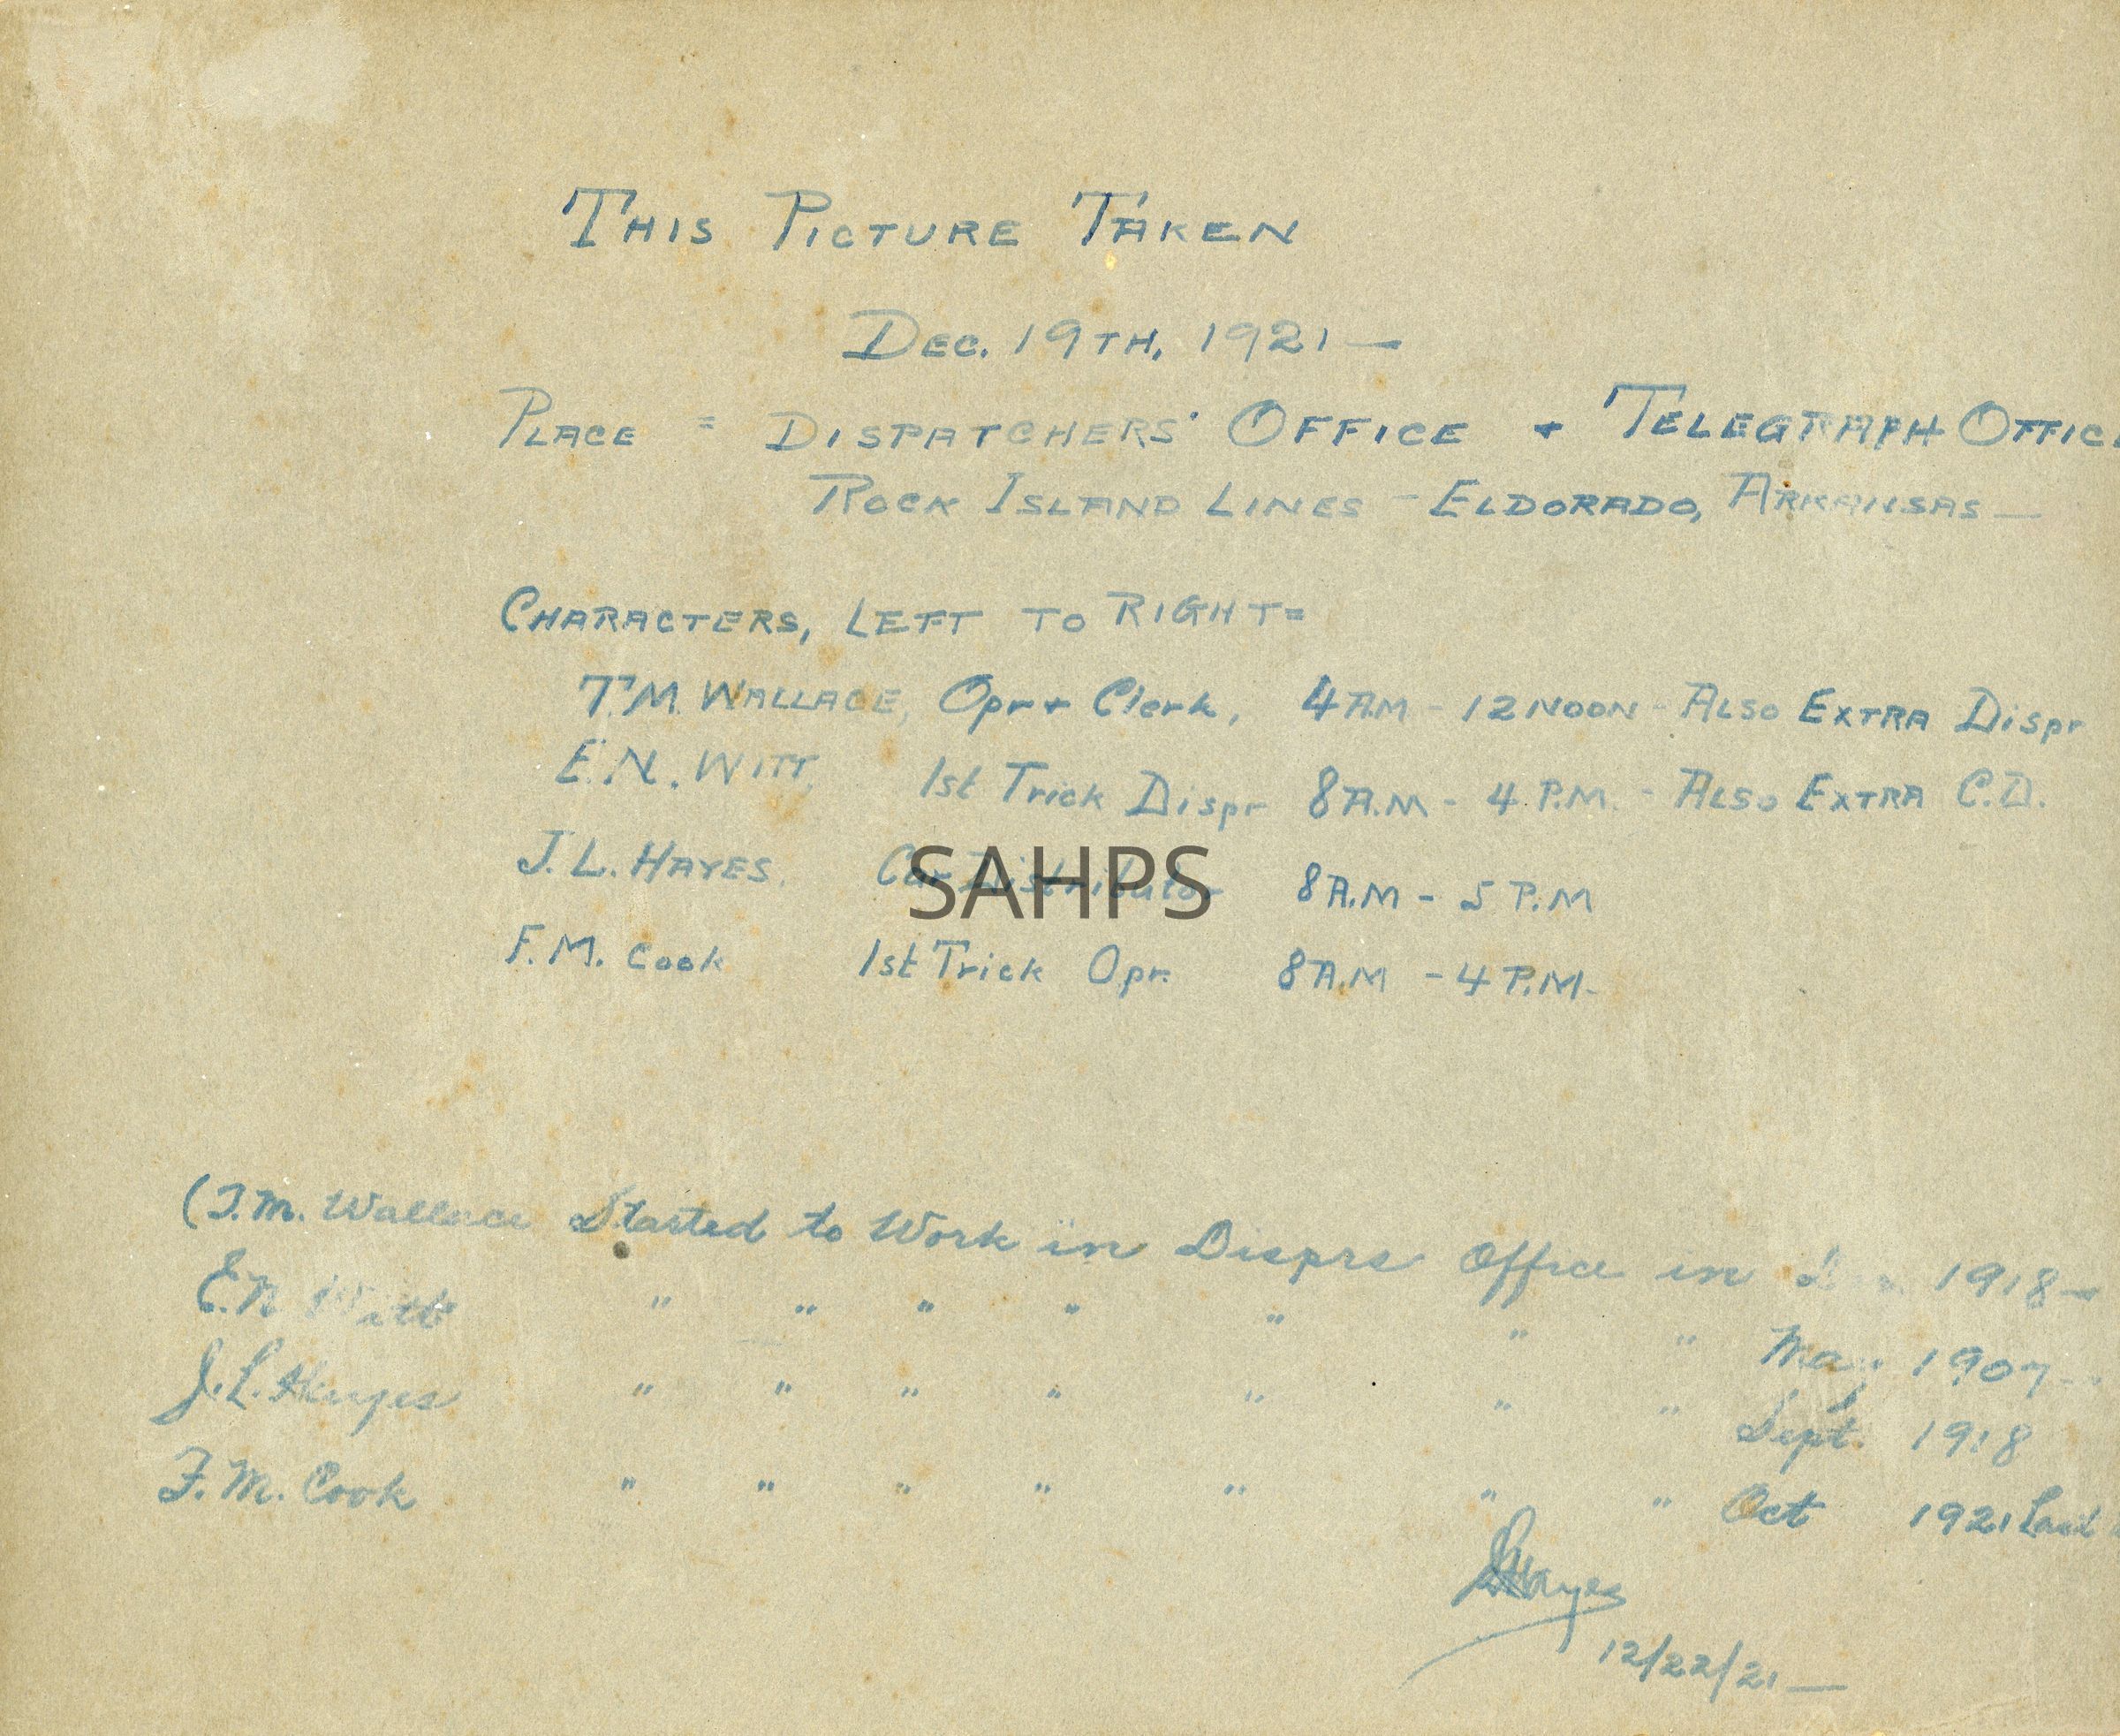 THIS PICTURE TAKEN
DEC. 19TH, 1921 —
PLACE = DISPATCHERS' OFFICE + TELEGRAPH OFFIC
ROCK ISLAND LINES - ELDORADO, ARKANSAS —
CHARACTERS, LEFT TO RIGHT=
T.M. WALLACE, Opr + Clerk, 4 AM - 12 NOON - ALSO EXTRA Dispr
E.N. WITT, 1st Trick Dispr 8 A.M - 4 P.M. - ALSO EXTRA C.D.
J.L. HAYES, Car Distributor 8 A.M - 5 P.M
SAHPS
F.M. Cook 1st Trick Opr. 8 A.M - 4 P.M. -
(T.M. Wallace Started to Work in Disprs Office in 1918 —
E.N Witt " " " " " " " May 1907 —
J.L. Hayes " " " " " " " Sept. 1918
F.M. Cook " " " " " " " Oct 1921
JLHayes
12/22/21 —